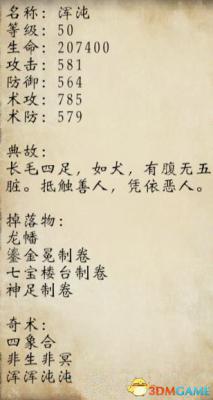 名称：浑沌
等级：50
生命：207400
攻击：581
防御：564
术攻：785
术防：579
典故：
长毛四足，如犬，有腹无五
脏。抵触善人，凭依恶人。
掉落物：
龙幡
鎏金冕制卷
七宝楼台制卷
神足制卷
奇术：
四象合
非生非冥
浑浑沌沌
3DMGAME